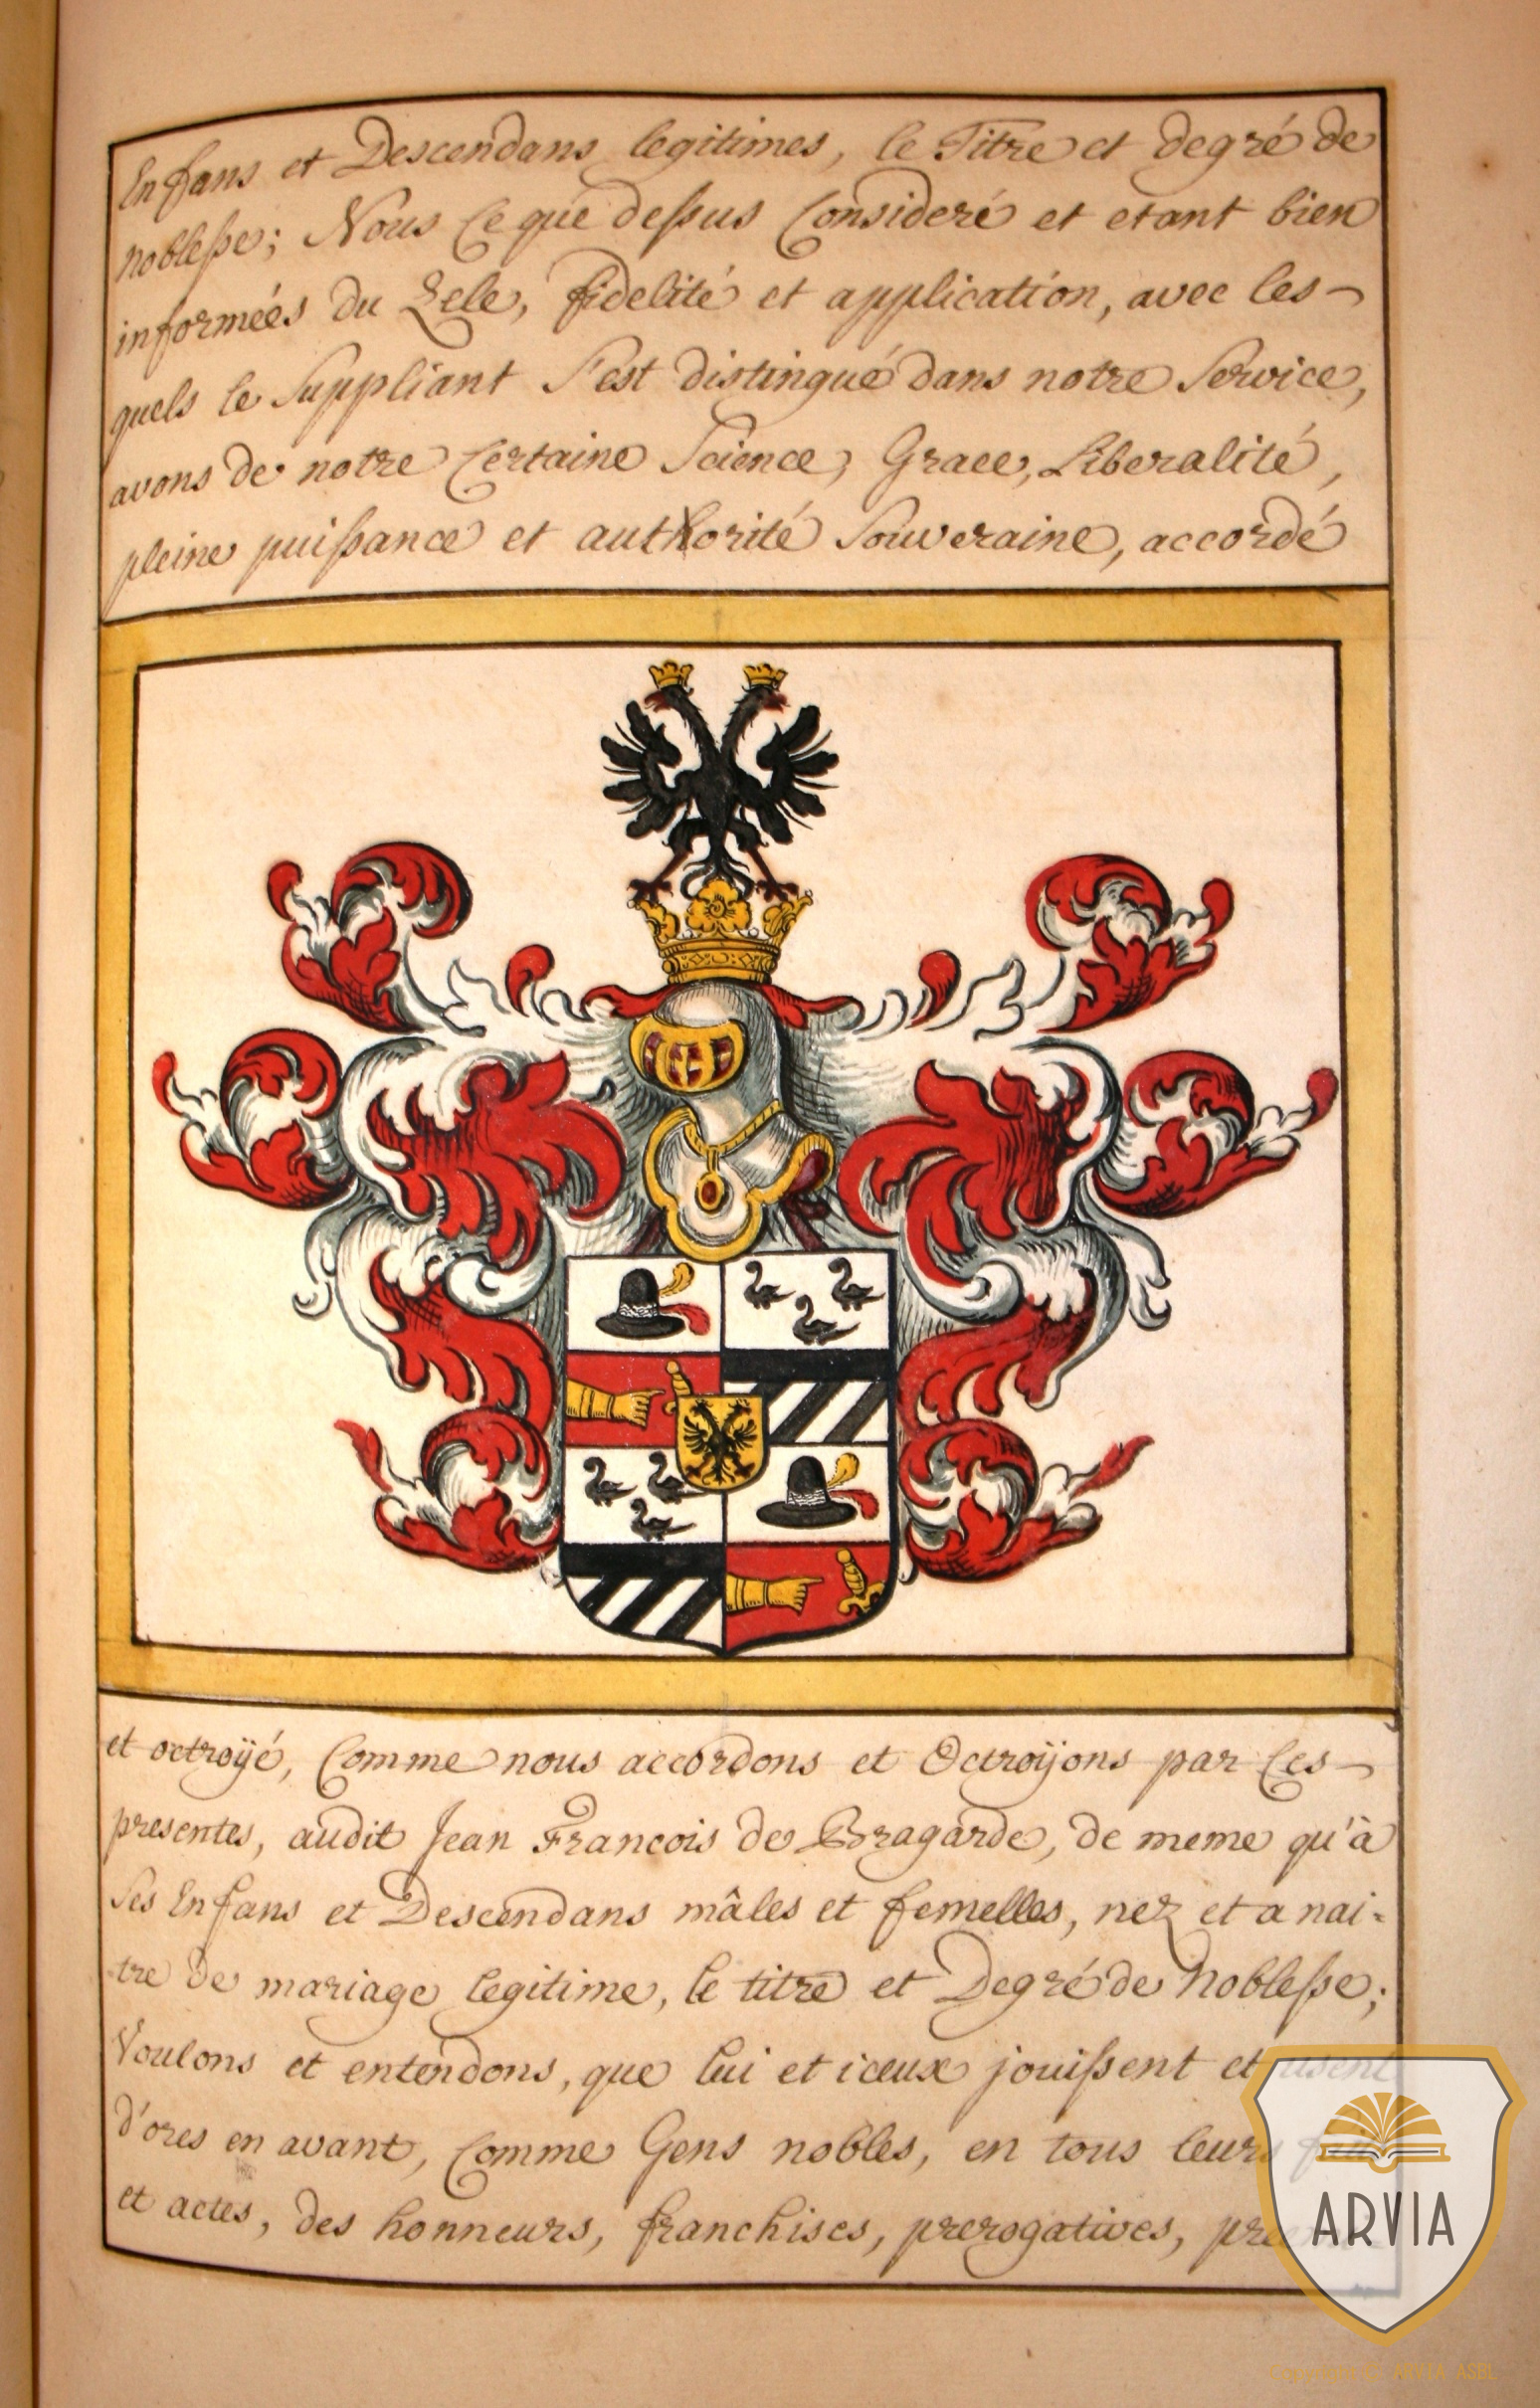 Enfans et Descendans legitimes, le Titre et degré de
noblesse; Nous Ce que dessus Consideré et etant bien
informées du Zele, fidelité et application, avec les-
quels le Suppliant S'est distingué dans notre Service,
avons de notre Certaine Science, Grace, Liberalité,
pleine puissance et authorité Souveraine, accordé
et octroÿé, Comme nous accordons et Octroÿons par Ces-
presentes, audit Jean Francois de Bragarde, de meme qu'à
Ses Enfans et Descendans mâles et femelles, nez et a nai-
tre de mariage legitime, le titre et Degré de Noblesse;
Voulons et entendons, que lui et iceux jouissent et usent
d'ores en avant, Comme Gens nobles, en tous leurs
et actes, des honneurs, franchises, prerogatives,
ARVIA
Copyright © ARVIA ASBL